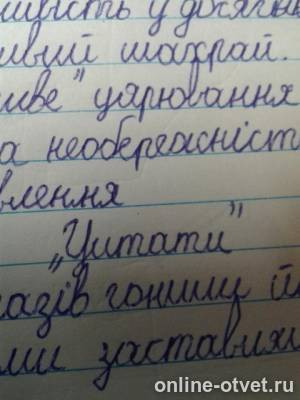 ливість у досягн
ивий шахрай.
иве" царювання
а необережніст
влення
„Цитати"
казів гонили й
ми заставля
online-otvet.ru